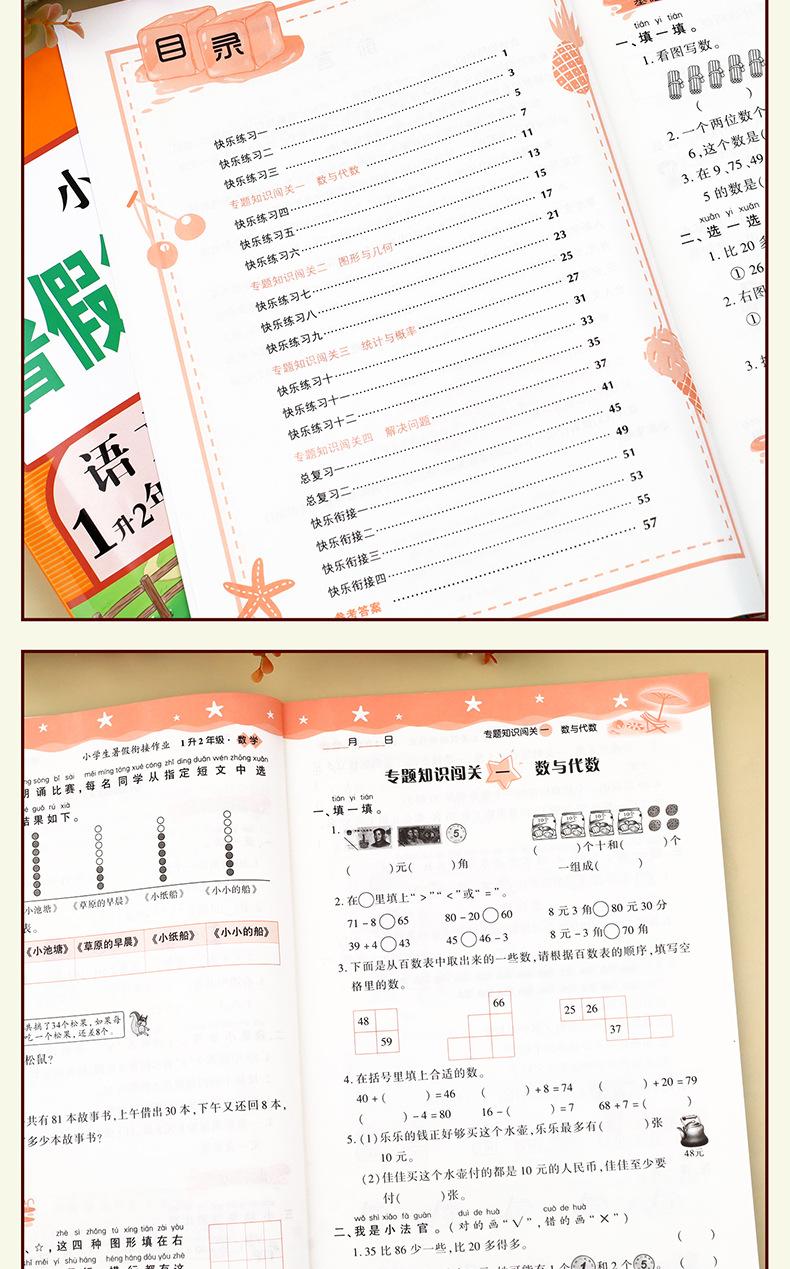 目录
快乐练习一 1
快乐练习二 3
快乐练习三 5
专题知识闯关一 数与代数 7
快乐练习四 11
快乐练习五 13
快乐练习六 15
专题知识闯关二 图形与几何 17
快乐练习七 21
快乐练习八 23
快乐练习九 25
专题知识闯关三 统计与概率 27
快乐练习十 31
快乐练习十一 33
快乐练习十二 35
专题知识闯关四 解决问题 37
总复习一 41
总复习二 45
快乐衔接一 49
快乐衔接二 51
快乐衔接三 53
快乐衔接四 55
参考答案 57
小
假
语
1升2
tián yi tián
一、填一填。
1.看图写数。
( )
2.一个两位数个
6,这个数是(
3.在 9、75、49
5 的数是(
xuǎn yi xuǎn
二、选一选
1.比 20 多
① 26
2.右图
①
3.
小学生暑假衔接作业 1升2年级·数学
sòng bǐ sài měi míng tóng xué cóng zhǐ dìng duǎn wén zhōng xuǎn
诵比赛,每名同学从指定短文中选
结果如下。
小池塘》 《草原的早晨》 《小纸船》 《小小的船》
表。
《小池塘》 《草原的早晨》 《小纸船》 《小小的船》
共摘了34个松果,如果每
吃一个松果,还差8个。
松鼠?
共有 81 本故事书,上午借出 30 本,下午又还回 8 本,
多少本故事书?
zhè sì zhǒng tú xíng tián zài yòu
、☆,这四种图形填在右
月 日
专题知识闯关一 数与代数
专题知识闯关 一 数与代数
tián yi tián
一、填一填。
1.
5
10个 10个 10个 10个
( )元( )角
( )个十和( )个
一组成( )
2.在○里填上“>”“<”或“=”。
71-8○65 80-20○60 8元3角○80元30分
39+4○43 45○46-3 8元-3角○70角
3.下面是从百数表中取出来的一些数,请根据百数表的顺序,填写空
格里的数。
48 59
66
25 26 37
4.在括号里填上合适的数。
40+( )=46 ( )+8=74 ( )+20=79
( )-4=80 16-( )=7 68+7=( )
5.(1)乐乐的钱正好够买这个水壶,乐乐最多有( )张
10元。
48元
(2)佳佳买这个水壶付的都是10元的人民币,佳佳至少要
付( )张。
wǒ shì xiǎo fǎ guān duì de huà cuò de huà
二、我是小法官。(对的画“√”,错的画“×”)
1.35比86少一些,比20多得多。 ( )
( )